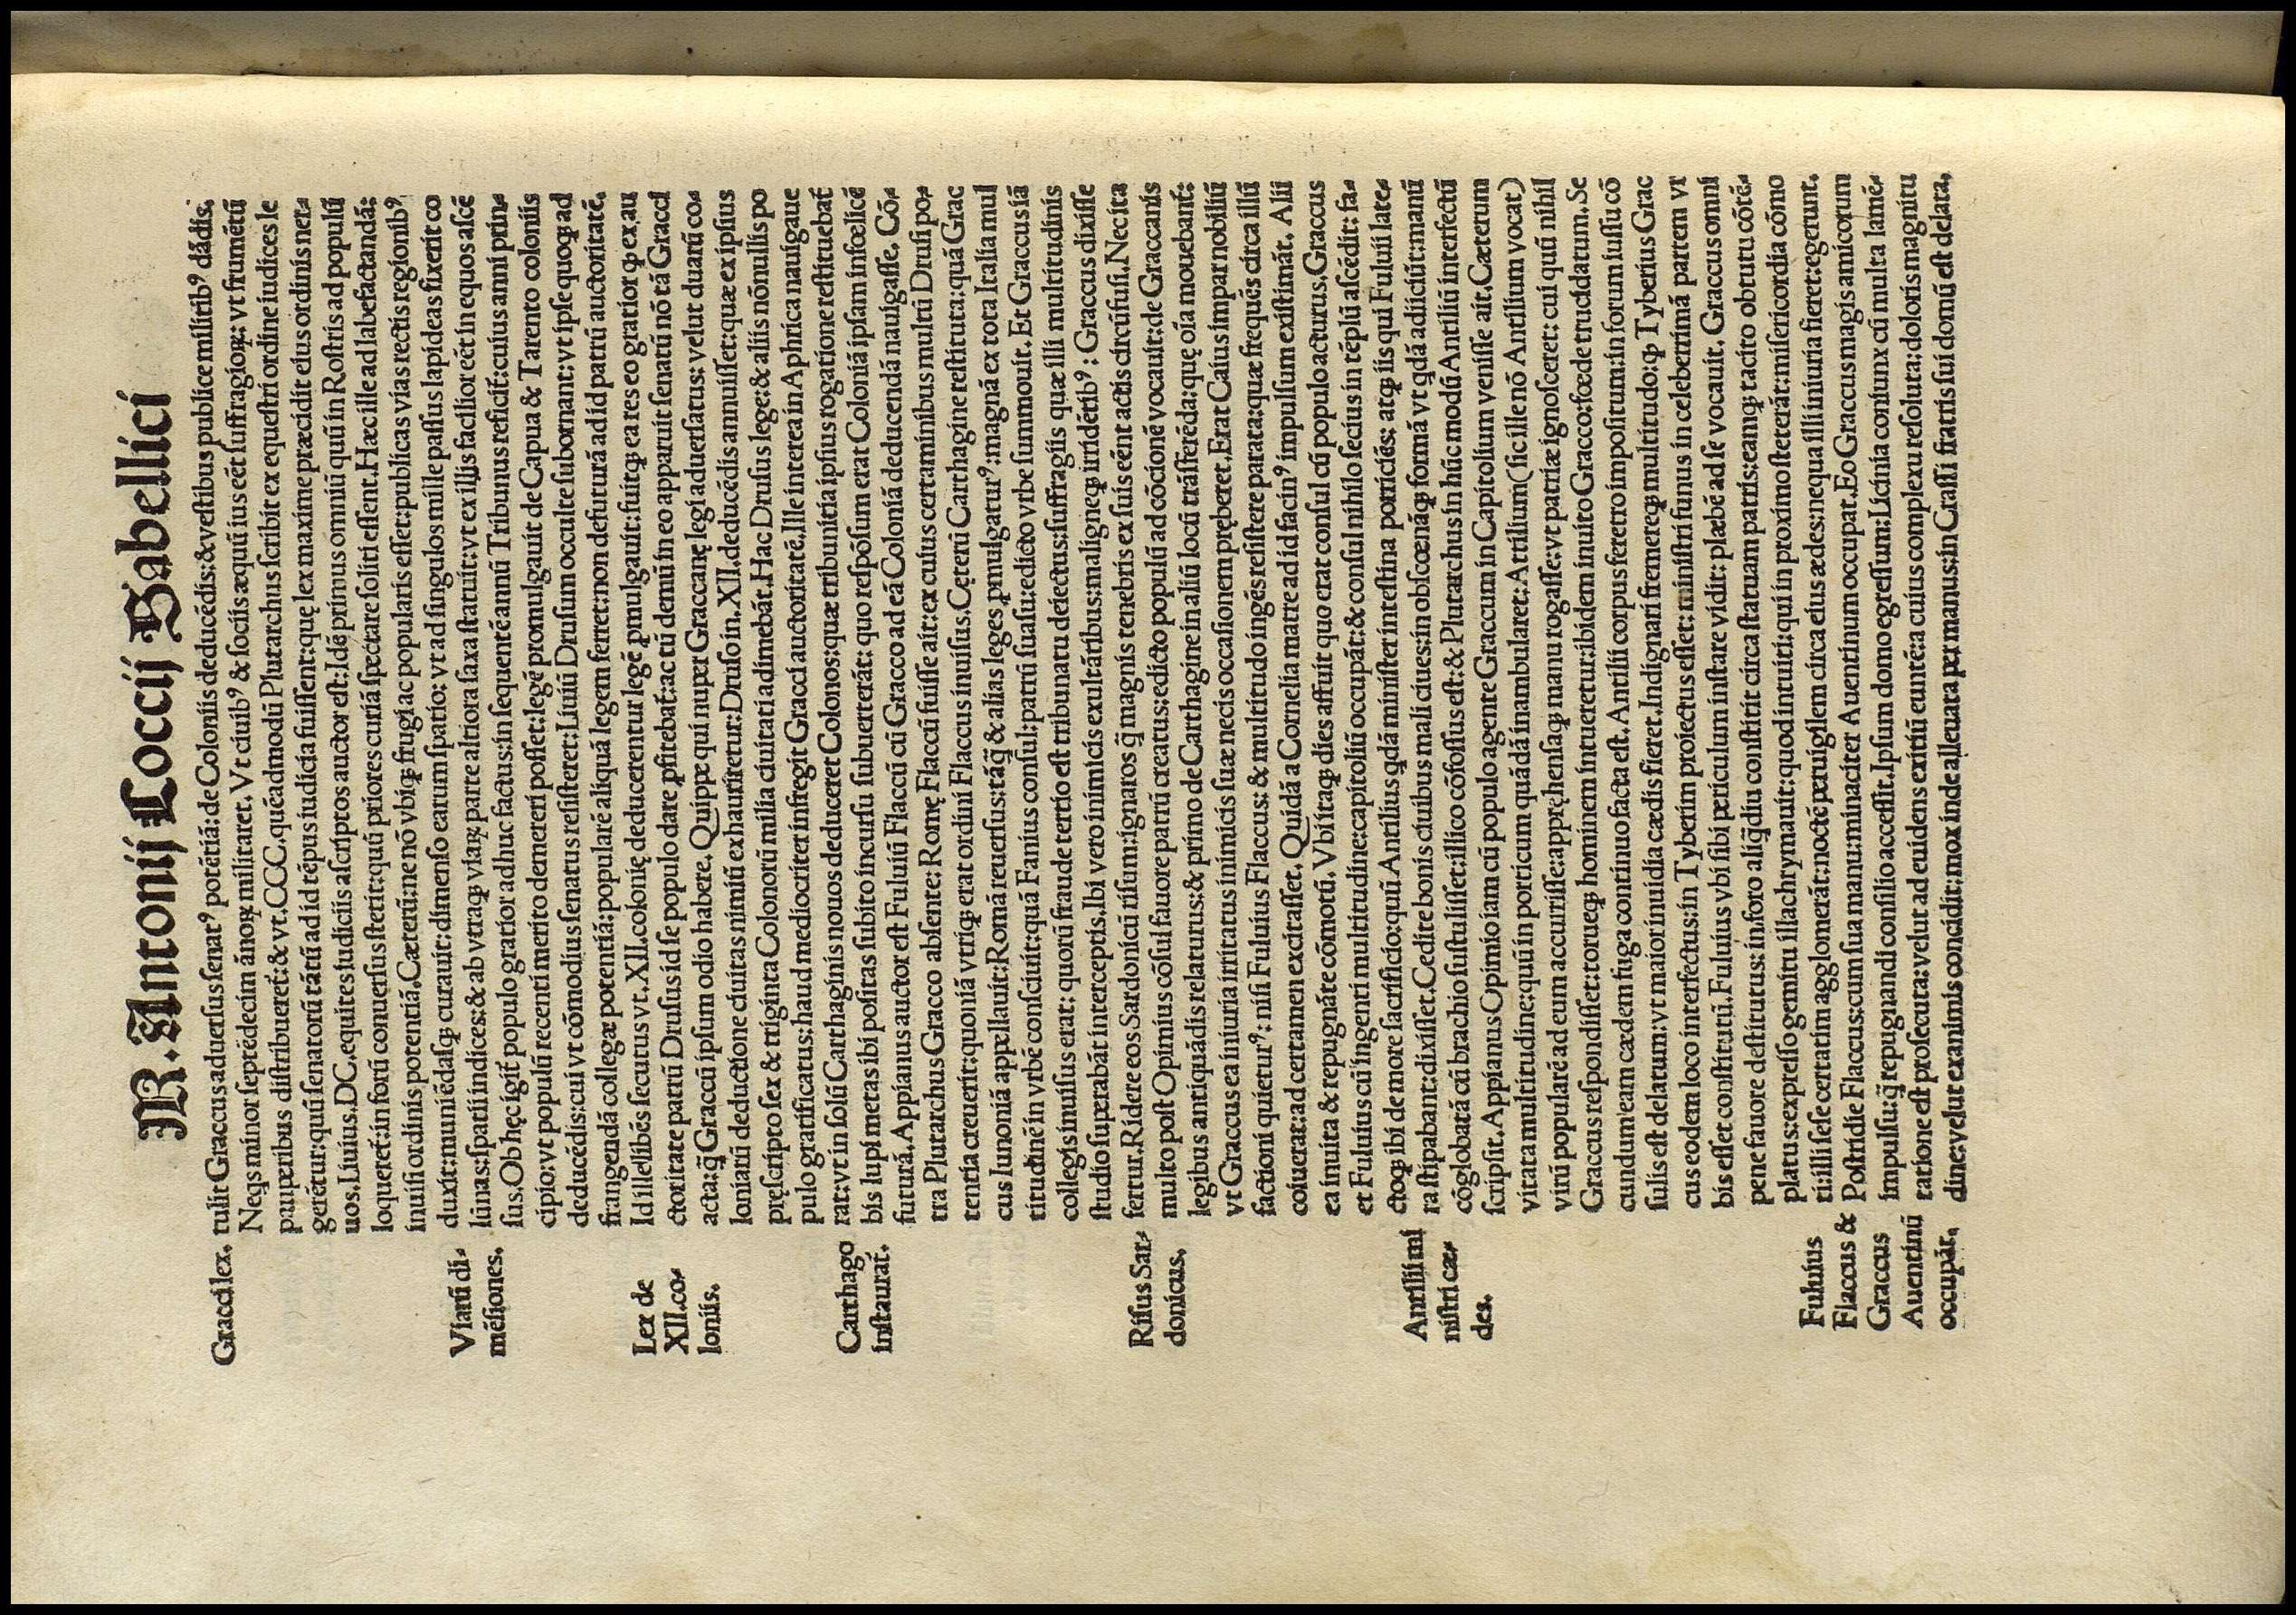 M. Antonij Coccij Sabellici
Gracci lex.
tulit Graccus aduersus senatꝰ potētiā: de Coloniis deducēdis: & vestibus publice militibꝰ dādis.
Neqs minor septēdecim ānoꝝ militaret. Vt ciuibꝰ & sociis æquū ius eēt suffragioꝝ: vt frumētū
pauperibus distribueret̄: & vt. CCC. quēadmodū Plutarchus scribit ex equestri ordine iudices le
gerētur: quū senatorū tātū ad id tēpus iudicia fuissent: quę lex maxime præcidit eius ordinis ner⸗
uos. Liuius. DC. equites iudiciis ascriptos auctor est: Idē primus omniū quū in Rostris ad populū
loqueret̄: in forū conuersus stetit: quū priores curiā spectare soliti essent. Hæc ille ad labefactandā:
inuisi ordinis potentiā. Cæterū: ne nō vbiqꝫ frugi ac popularis esset: publicas vias rectis regionibꝰ
duxit: muniēdasqꝫ curauit: dimenso earum spatio: vt ad singulos mille passus lapideas fixerit co
lūnas: spatii indices: & ab vtraqꝫ vīaꝝ parte altiora saxa statuit: vt ex illis facilior eēt in equos ascē
sus. Ob hęc igit̄ populo gratior adhuc factus: in sequentē annū Tribunus reficit̄: cuius anni prin⸗
cipio: vt populū recenti merito demereri posset: legē promulgauit de Capua & Tarento coloniis
deducēdis: cui vt cōmodius senatus resisteret: Liuiū Drusum occulte subornant: vt ipse quoqꝫ ad
frangendā collegæ potentiā: popularē aliquā legem ferret: non defuturā ad id patrū auctoritatē.
Id ille libēs secutus vt. XII. colonię deducerentur legē ꝓmulgauit: fuitqꝫ ea res eo gratior ꝙ ex au
ctoritate patrū Drusius id se populo dare ꝓfitebat̄: ac tū demū in eo apparuit senatū nō tā Gracci
acta: q̄ Graccū ipsum odio habere. Quippe qui nuper Graccanę legi aduersatus: velut duarū co⸗
loniarū deductione ciuitas nimiū exhauriretur: Druso in. XII. deducēdis annuisset: quæ ex ipsius
pręscripto sex & triginta Colonorū milia ciuitati adimebāt. Hac Drusus lege: & aliis nōnullis po
pulo gratificatus: haud mediocriter infregit Gracci auctoritatē. Ille interea in Aphrica nauigaue
rat: vt in solū Carthaginis nouos deduceret Colonos: quæ tribunitia ipsius rogatione restituebat̄
bis lupi metas ibi positas subito incursu subuerterāt: quo respōsum erat Coloniā ipsam infœlicē
futurā. Appianus auctor est Fuluiū Flaccū cū Gracco ad eā Coloniā deducendā nauigasse. Cō⸗
tra Plutarchus Gracco absente: Romę Flaccū fuisse ait: ex cuius certaminibus multū Drusi po⸗
tentia creuerit: quoniā vtriqꝫ erat ordini Flaccus inuisus. Cęterū Carthagine restituta: quā Grac
cus Iunoniā appellauit: Romā reuersus: tāq̄ & alias leges ꝓmulgaturꝰ: magnā ex tota Italia mul
titudinē in vrbē consciuit: quā Fanius consul: patrū suasu: edicto vrbe summouit. Et Graccus iā
collegis inuisus erat: quorū fraude tertio est tribunatu deiectus: suffragiis quæ illi multitudinis
studio superabāt interceptis. Ibi vero inimicis exultātibus: maligneqꝫ irridētibꝰ: Graccus dixisse
fertur. Ridere eos Sardonicū risum: ignaros q̄ magnis tenebris ex suis eēnt actis circūfusi. Nec ita
multo post Opimius cōsul fauore patrū creatus: edicto populū ad cōcionē vocauit: de Graccanis
legibus antiquādis relaturus: & primo de Carthagine in aliū locū trāsferēda: quę oīa mouebant̄:
vt Graccus ea iniuria irritatus inimicis suæ necis occasionem pręberet. Erat Caius impar nobiliū
factioni quieturꝰ: nisi Fuluius Flaccus: & multitudo ingēs resistere parata: quæ frequēs circa illū
coiuerat: ad certamen excitasset. Quidā a Cornelia matre ad id facinꝰ impulsum existimāt. Alii
ea inuita & repugnāte cōmotū. Vbi itaqꝫ dies affuit quo erat consul cū populo acturus. Graccus
et Fuluius cū ingenti multitudine: capitoliū occupāt: & consul nihilo secius in tēplū ascēdit: fa⸗
ctoqꝫ ibi de more sacrificio: quū Antilius qdā minister intestina porriciēs: atqꝫ iis qui Fuluii late⸗
ra stipabant: dixisset. Cedite bonis ciuibus mali ciues: in obscœnāqꝫ formā vt qdā adiiciūt: manū
cōglobatā cū brachio sustulisset: illico cōfossus est: & Plutarchus in hūc modū Antiliū interfectū
scripsit. Appianus Opimio iam cū populo agente Graccum in Capitolium venisse ait. Cæterum
vitata multitudine: quū in porticum quādā inambularet: Attilium (sic ille nō Antilium vocat)
virū popularē ad eum accurrisse: appręhensaqꝫ manu rogasse: vt patriæ ignosceret: cui quū nihil
Graccus respondisset: torueqꝫ hominem intueretur: ibidem inuito Gracco: fœde trucidatum. Se
cundum eam cædem fuga continuo facta est. Antilii corpus feretro impositum: in forum iussu cō
sulis est delatum: vt maior inuidia cædis fieret. Indignari fremereqꝫ multitudo: ꝙ Tyberius Grac
cus eodem loco interfectus: in Tyberim proiectus esset: ministri funus in celeberrimā partem vr
bis esset constitutū. Fuluius vbi sibi periculum instare vidit: plæbē ad se vocauit. Graccus omni
pene fauore destitutus: in foro aliq̄diu constitit circa statuam patris: eamqꝫ tacito obtutu cōtē⸗
platus: expresso gemitu illachrymauit: quod intuiti: qui in proximo steterāt: misericordia cōmo
ti: illi sese certatim agglomerāt: noctē peruigilem circa eius ædes: nequa illi iniuria fieret: egerunt.
Postridie Flaccus: cum sua manu: minaciter Auentinum occupat. Eo Graccus magis amicorum
impulsu: q̄ repugnandi consilio accessit. Ipsum domo egressum: Licinia coniunx cū multa lamē⸗
tatione est prosecuta: velut ad euidens exitiū euntē: a cuius complexu resoluta: doloris magnitu
dine: velut exanimis concidit: mox inde alleuata per manus: in Crassi fratris sui domū est delata.
Viarū di⸗
mēsiones.
Lex de
XII. co⸗
loniis.
Carthago
instaurat̄.
Risus Sar⸗
donicus.
Antilii mi
nistri cæ⸗
des.
Fuluius
Flaccus &
Graccus
Auentinū
occupāt.